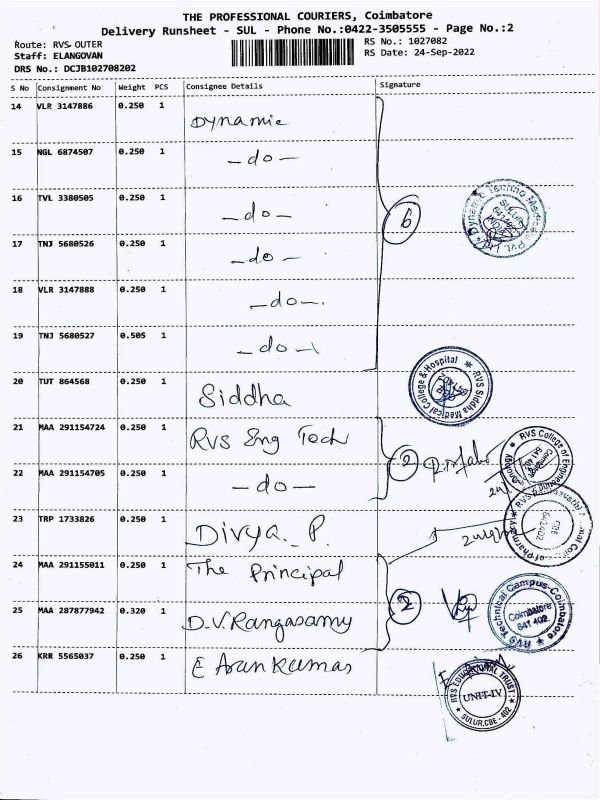 THE PROFESSIONAL COURIERS, Coimbatore
Delivery Runsheet - SUL - Phone No.:0422-3505555 - Page No.:2
Route: RVS OUTER
RS No.: 1027082
Staff: ELANGOVAN
RS Date: 24-Sep-2022
DRS No.: DCJB102708202
S No Consignment No Weight PCS Consignee Details Signature
14 VLR 3147886 0.250 1 Dynamic
15 NGL 6874507 0.250 1 -do-
16 TVL 3380505 0.250 1 -do-
17 TNJ 5680526 0.250 1 -do-
18 VLR 3147888 0.250 1 -do-.
19 TNJ 5680527 0.505 1 -do-
6
Dynamic Techno Medicals Pvt. Ltd
SULUR
641402
INDIA
20 TUT 864568 0.250 1 Siddha
RVS Siddha Medical College & Hospital
21 MAA 291154724 0.250 1 RVS Eng Tech
22 MAA 291154705 0.250 1 -do-
2
RVS College of Engineering
641 402
23 TRP 1733826 0.250 1 Divya. P.
of Pharmacy
CBE
641402
24 MAA 291155011 0.250 1 The Principal
25 MAA 287877942 0.320 1 D.V.Rangasamy
2
RVS Technical Campus-Coimbatore
Coimbatore
641 402
26 KRR 5565037 0.250 1 E Arunkumar
RVS EDUCATIONAL TRUST
UNIT-IV
SULUR,CBE - 402